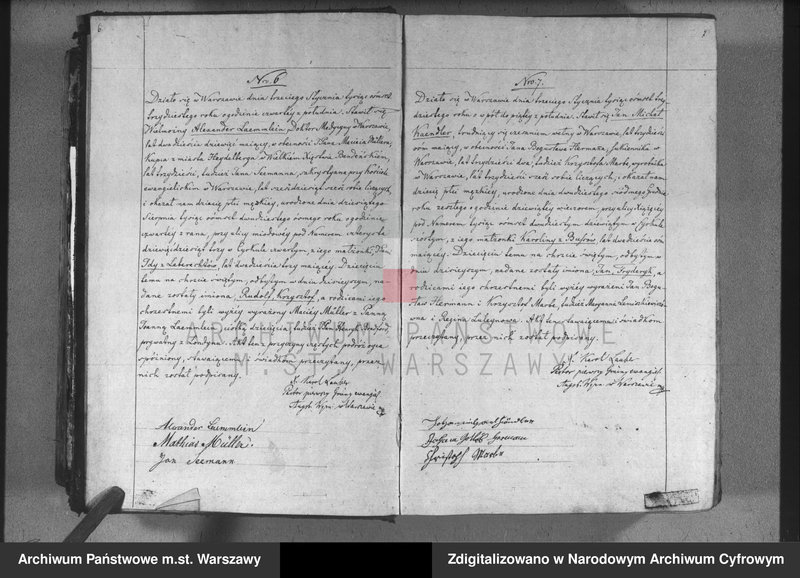 6
Nro. 6
Działo się w Warszawie dnia trzeciego Stycznia tysiąc ośmset
trzydziestego roku o godzinie czwartey z południa, Stawił się
Walmożny Alexander Laemmlein, Doktor Medycyny w Warszawie,
lat dwadzieścia dziewięć maiący, w obecności Pana Macieia Müllera,
Kupca z miasta Heydelberga w Wielkiem Xięstwie Badeńskiem,
lat trzydzieści, tudzież Jana Seemanna, zakrystyana przy Kościele
ewangielickim w Warszawie, lat sześćdziesiąt sześć roku liczących,
i okazał nam dziecię płci męzkiey, urodzone dnia dziewiątego
Sierpnia tysiąc ośmset dwudziestego ósmego roku o godzinie
czwartey z rana, przy ulicy miodowey pod Numerem czterysta
dziewiędziesiąt trzy w Cyrkule czwartym, z iego małżonki,
Idy z lat dwadzieścia trzy maiącey. Dziecięciu
temu na chrzcie świętym, odbytym w dniu dzisieyszym, na-
dane zostały imiona, Rudolf Krzysztof, a rodzicami iego
chrzestnemi byli wyżey wyrażony Maciey Müller z Panną
Joanną Laemmlein, ciotką dziecięcia, tudzież Pan Henryk
prywatny z Londynu. Akt ten z przyczyny częstych podróży oyca
opóźniony, stawaiącemu i świadkom przeczytany, przez
nich został podpisany.
X. Karol Lauber
Pastor pierwszy Gminy ewangiel.
Augsb. Wyzn. w Warszawie
Alexander Laemmlein
Mathias Müller.
Jan Seemann
7
Nro. 7.
Działo się w Warszawie dnia trzeciego Stycznia tysiąc ośmset trzy-
dziestego roku o w pół do piątey z południa. Stawił się Jan Michał
Haendler, trudniący się czesaniem wełny w Warszawie, lat trzydzieści
ośm maiący, w obecności Jana Bogusława Hermana, Sukiennika w
Warszawie, lat trzydzieści dwa, tudzież Krzysztofa Marbe, wyrobnika
w Warszawie, lat trzydzieści sześć sobie liczących, i okazał nam
dziecię płci męzkiey, urodzone dnia dwudziestego siódmego Grudnia
roku zeszłego o godzinie dziewiątey wieczorem, przy ulicy Xiążęcey
pod Numerem tysiąc ośmset dwudziestym dziewiątym w Cyrkule
szóstym, z iego małżonki Karoliny z Busów, lat dwadzieścia ośm
maiącey. Dziecięciu temu na chrzcie świętym, odbytym w
dniu dzisieyszym, nadane zostały imiona, Jan, Fryderyk, a
rodzicami iego chrzestnemi byli wyżey wyrażeni Jan Bogu-
sław Hermann i Krzysztof Marbe, tudzież Maryanna
i Regina Akt ten stawaiącemu i świadkom
przeczytany, przez nich został podpisany.
X. Karol Lauber
Pastor pierwszy Gminy ewangiel.
Augsb. Wyzn. w Warszawie
Johann Gotlob Herman
Christoph Marbe
ARCHIWUM PAŃSTWOWE
M.ST. WARSZAWY
Archiwum Państwowe m.st. Warszawy
Zdigitalizowano w Narodowym Archiwum Cyfrowym